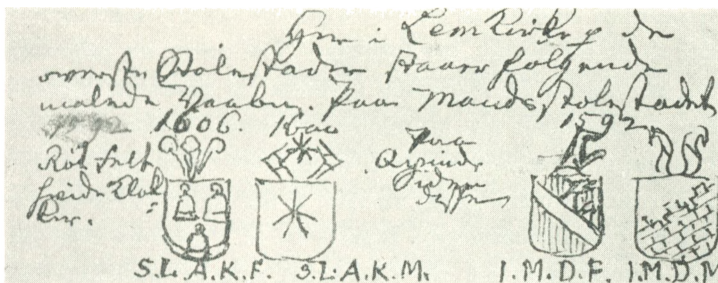 Her i Lem Kirke p de
øverste Stolestader staaer følgende
malede Vaaben. Paa Mands stolestadet
1606. 1600 1592
Röt felt
hvide Klok=
ker.
Paa
Qvinde
siden
disse
S.L.A.K.F. S.L.A.K.M. I.M.D.F. I.M.D.M